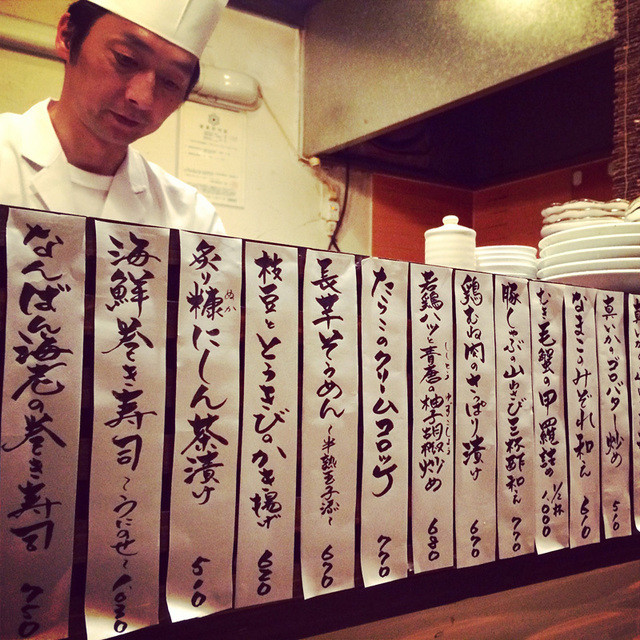 なんばん海老の巻き寿司 750
海鮮巻き寿司 〜うにのせ〜 1,030
炙り糠にしん茶漬け 510
ぬか
枝豆ととうきびのかき揚げ 620
長芋そうめん 〜半熟玉子添〜 670
たらこのクリームコロッケ 770
若鶏ハツと青唐の柚子胡椒炒め 680
ししとう
ゆずこしょう
鶏むね肉のさっぱり漬け 670
豚しゃぶ山わさび三杯酢和え 770
むき毛蟹の甲羅詰め 1/2杯 1,000
なまこのみぞれ和え 610
真いかのゴロバター炒め 510